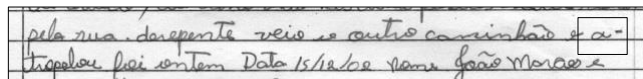 pela rua. derepente veio o outro caminhão e a-
tropelou foi ontem Data 15/12/02 nome João Moraes e